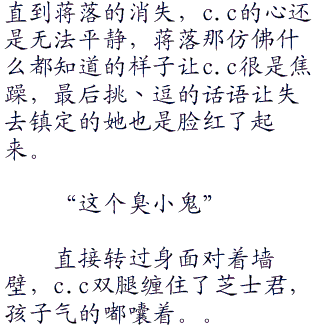 直到蒋落的消失，c.c的心还
是无法平静，蒋落那仿佛什
么都知道的样子让c.c很是焦
躁，最后挑、逗的话语让失
去镇定的她也是脸红了起
来。
“这个臭小鬼”
直接转过身面对着墙
壁，c.c双腿缠住了芝士君，
孩子气的嘟囔着。。